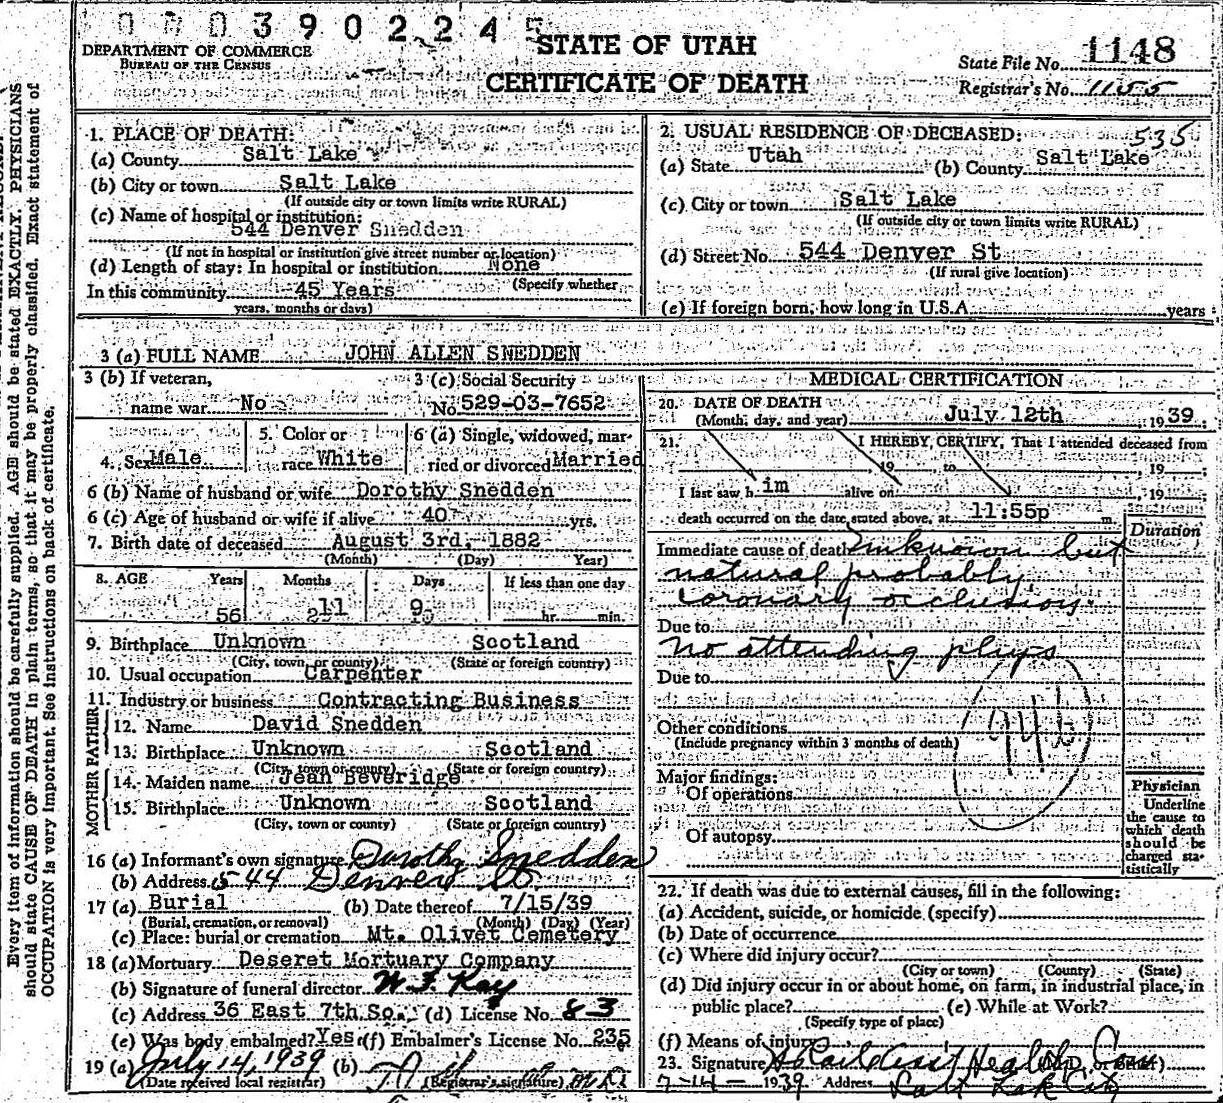 0 0 0 3 9 0 2 2 4 5
DEPARTMENT OF COMMERCE
BUREAU OF THE CENSUS
STATE OF UTAH
CERTIFICATE OF DEATH
State File No. 1148
Registrar's No. 1155
1. PLACE OF DEATH:
(a) County Salt Lake
(b) City or town Salt Lake
(If outside city or town limits write RURAL)
(c) Name of hospital or institution:
544 Denver Snedden
(If not in hospital or institution give street number or location)
(d) Length of stay: In hospital or institution None
(Specify whether
In this community 45 Years
years, months or days)
2. USUAL RESIDENCE OF DECEASED: 535
(a) State Utah (b) County Salt Lake
(c) City or town Salt Lake
(If outside city or town limits write RURAL)
(d) Street No. 544 Denver St
(If rural give location)
(e) If foreign born, how long in U.S.A. years
3 (a) FULL NAME JOHN ALLEN SNEDDEN
3 (b) If veteran,
name war No
3 (c) Social Security
No. 529-03-7652
4. Sex Male
5. Color or
race White
6 (a) Single, widowed, mar-
ried or divorced Married
6 (b) Name of husband or wife Dorothy Snedden
6 (c) Age of husband or wife if alive 40 yrs.
7. Birth date of deceased August 3rd, 1882
(Month) (Day) Year)
8. AGE Years Months Days If less than one day
56 11 9 hr. min.
9. Birthplace Unknown Scotland
(City, town, or county) (State or foreign country)
10. Usual occupation Carpenter
11. Industry or business Contracting Business
FATHER
12. Name David Snedden
13. Birthplace Unknown Scotland
(City, town or county) (State or foreign country)
MOTHER
14. Maiden name Jean Beveridge
15. Birthplace Unknown Scotland
(City, town or county) (State or foreign country)
16 (a) Informant's own signature Dorothy Snedden
(b) Address 544 Denver St.
17 (a) Burial (b) Date thereof 7/15/39
(Burial, cremation, or removal) (Month) (Day) (Year)
(c) Place: burial or cremation Mt. Olivet Cemetery
18 (a) Mortuary Deseret Mortuary Company
(b) Signature of funeral director W. F. Kay
(c) Address 36 East 7th So. (d) License No. 83
(e) Was body embalmed? Yes (f) Embalmer's License No. 235
19 (a) July 14, 1939 (b)
(Date received local registrar) (Registrar's signature)
MEDICAL CERTIFICATION
20. DATE OF DEATH
(Month, day, and year) July 12th, 1939
21. I HEREBY CERTIFY, That I attended deceased from
, 19 to , 19
I last saw h im alive on , 19
death occurred on the date stated above, at 11:55p m.
Duration
Immediate cause of death Unknown but
natural probably
coronary occlusion.
Due to
No attending phys
Due to
94b
Other conditions
(Include pregnancy within 3 months of death)
Major findings:
Of operations
Of autopsy
Physician
Underline
the cause to
which death
should be
charged sta-
tistically
22. If death was due to external causes, fill in the following:
(a) Accident, suicide, or homicide (specify)
(b) Date of occurrence
(c) Where did injury occur?
(City or town) (County) (State)
(d) Did injury occur in or about home, on farm, in industrial place, in
public place? (e) While at Work?
(Specify type of place)
(f) Means of injury
23. Signature Health Com
7-14- 1939 Address Salt Lake City
Every item of information should be carefully supplied. AGE should be stated EXACTLY. PHYSICIANS
should state CAUSE OF DEATH in plain terms, so that it may be properly classified. Exact statement of
OCCUPATION is very important. See instructions on back of certificate.